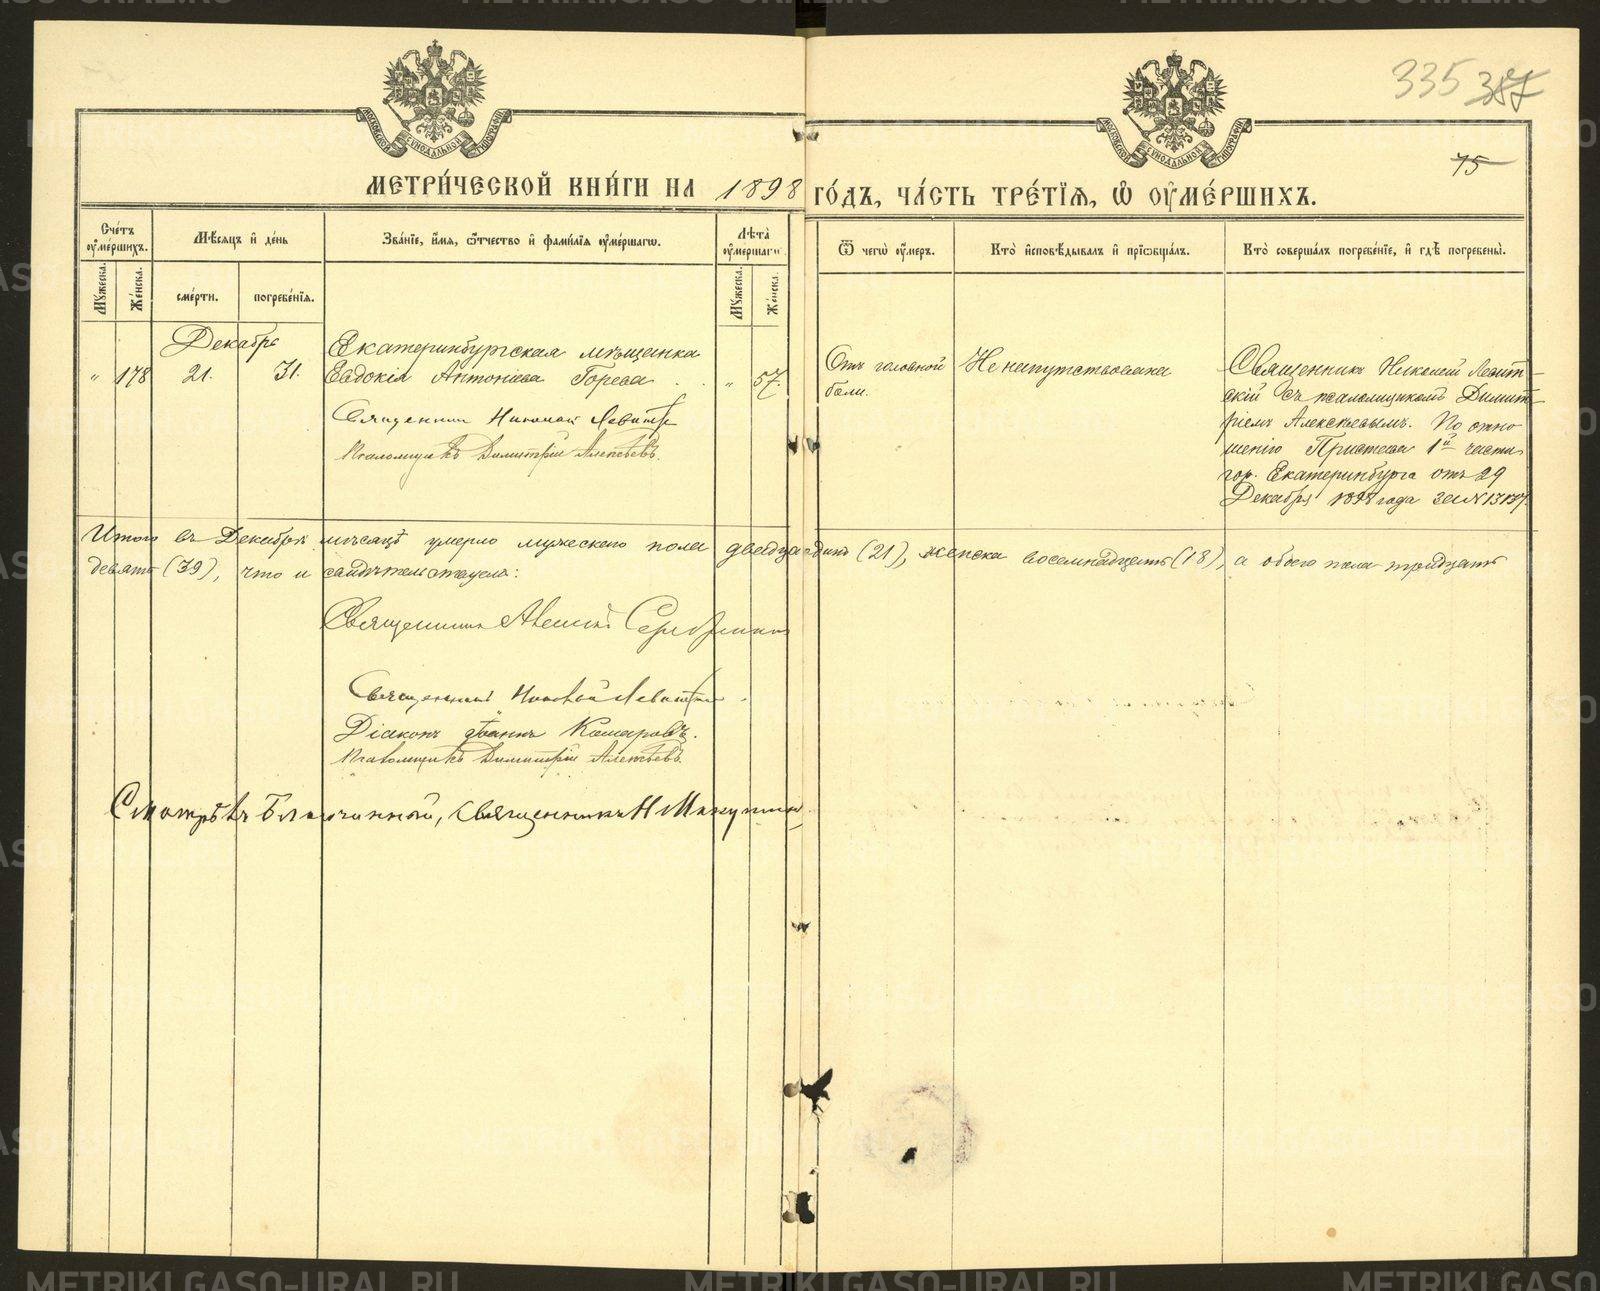 335 387
75
МОСКОВСКОЙ СѴНОДАЛЬНОЙ ТИПОГРАФІИ
МОСКОВСКОЙ СѴНОДАЛЬНОЙ ТИПОГРАФІИ
МЕТРИ́ЧЕСКОЙ КНИ́ГИ НА 1898 ГО́ДЪ, ЧА́СТЬ ТРЕ́ТІЯ, Ѽ ОУ҆МЕ́РШИХЪ.
Сче́тъ оу҆ме́ршихъ.
Мѣ́сяцъ и҆ де́нь
Зва́ніе, и҆́мя, ѻ҆́тчество и҆ фами́лія оу҆ме́ршагѡ.
Лѣ́та оу҆ме́ршагѡ
Ѿ чегѡ̀ оу҆́меръ.
Кто̀ и҆сповѣ́дывалъ и҆ прїѻбща́лъ.
Кто̀ соверша́лъ погребе́ніе, и҆ гдѣ̀ погребены̀.
Му́жеска.
Же́нска.
сме́рти.
погребе́нія.
Му́жеска.
Же́нска.
Декабрь
" 178 21. 31.
Екатеринбургская мѣщанка
Евдокія Антоніева Горева . . " 57.
Священникъ Николай Левитскій
Псаломщикъ Димитрій Алексѣевъ.
Отъ головной
боли.
Не напутствована
Священникъ Николай Левит-
скій съ псаломщикомъ Димит-
ріемъ Алексѣевымъ. По отно
шенію Пристава 1й части
гор. Екатеринбурга отъ 29
Декабря 1898 года за №
Итого въ Декабрѣ мѣсяцѣ умерло мужескаго пола двадцать одинъ (21), женска восемнадцать (18), а обоего пола тридцать
девять (39), что и свидѣтельствуемъ:
Священникъ
Священникъ Николай Левитскій
Діаконъ Іоаннъ Комаровъ.
Псаломщикъ Димитрій Алексѣевъ
Смотрѣлъ Благочинный, Священникъ Н Микушин
METRIKI.GASO-URAL.RU